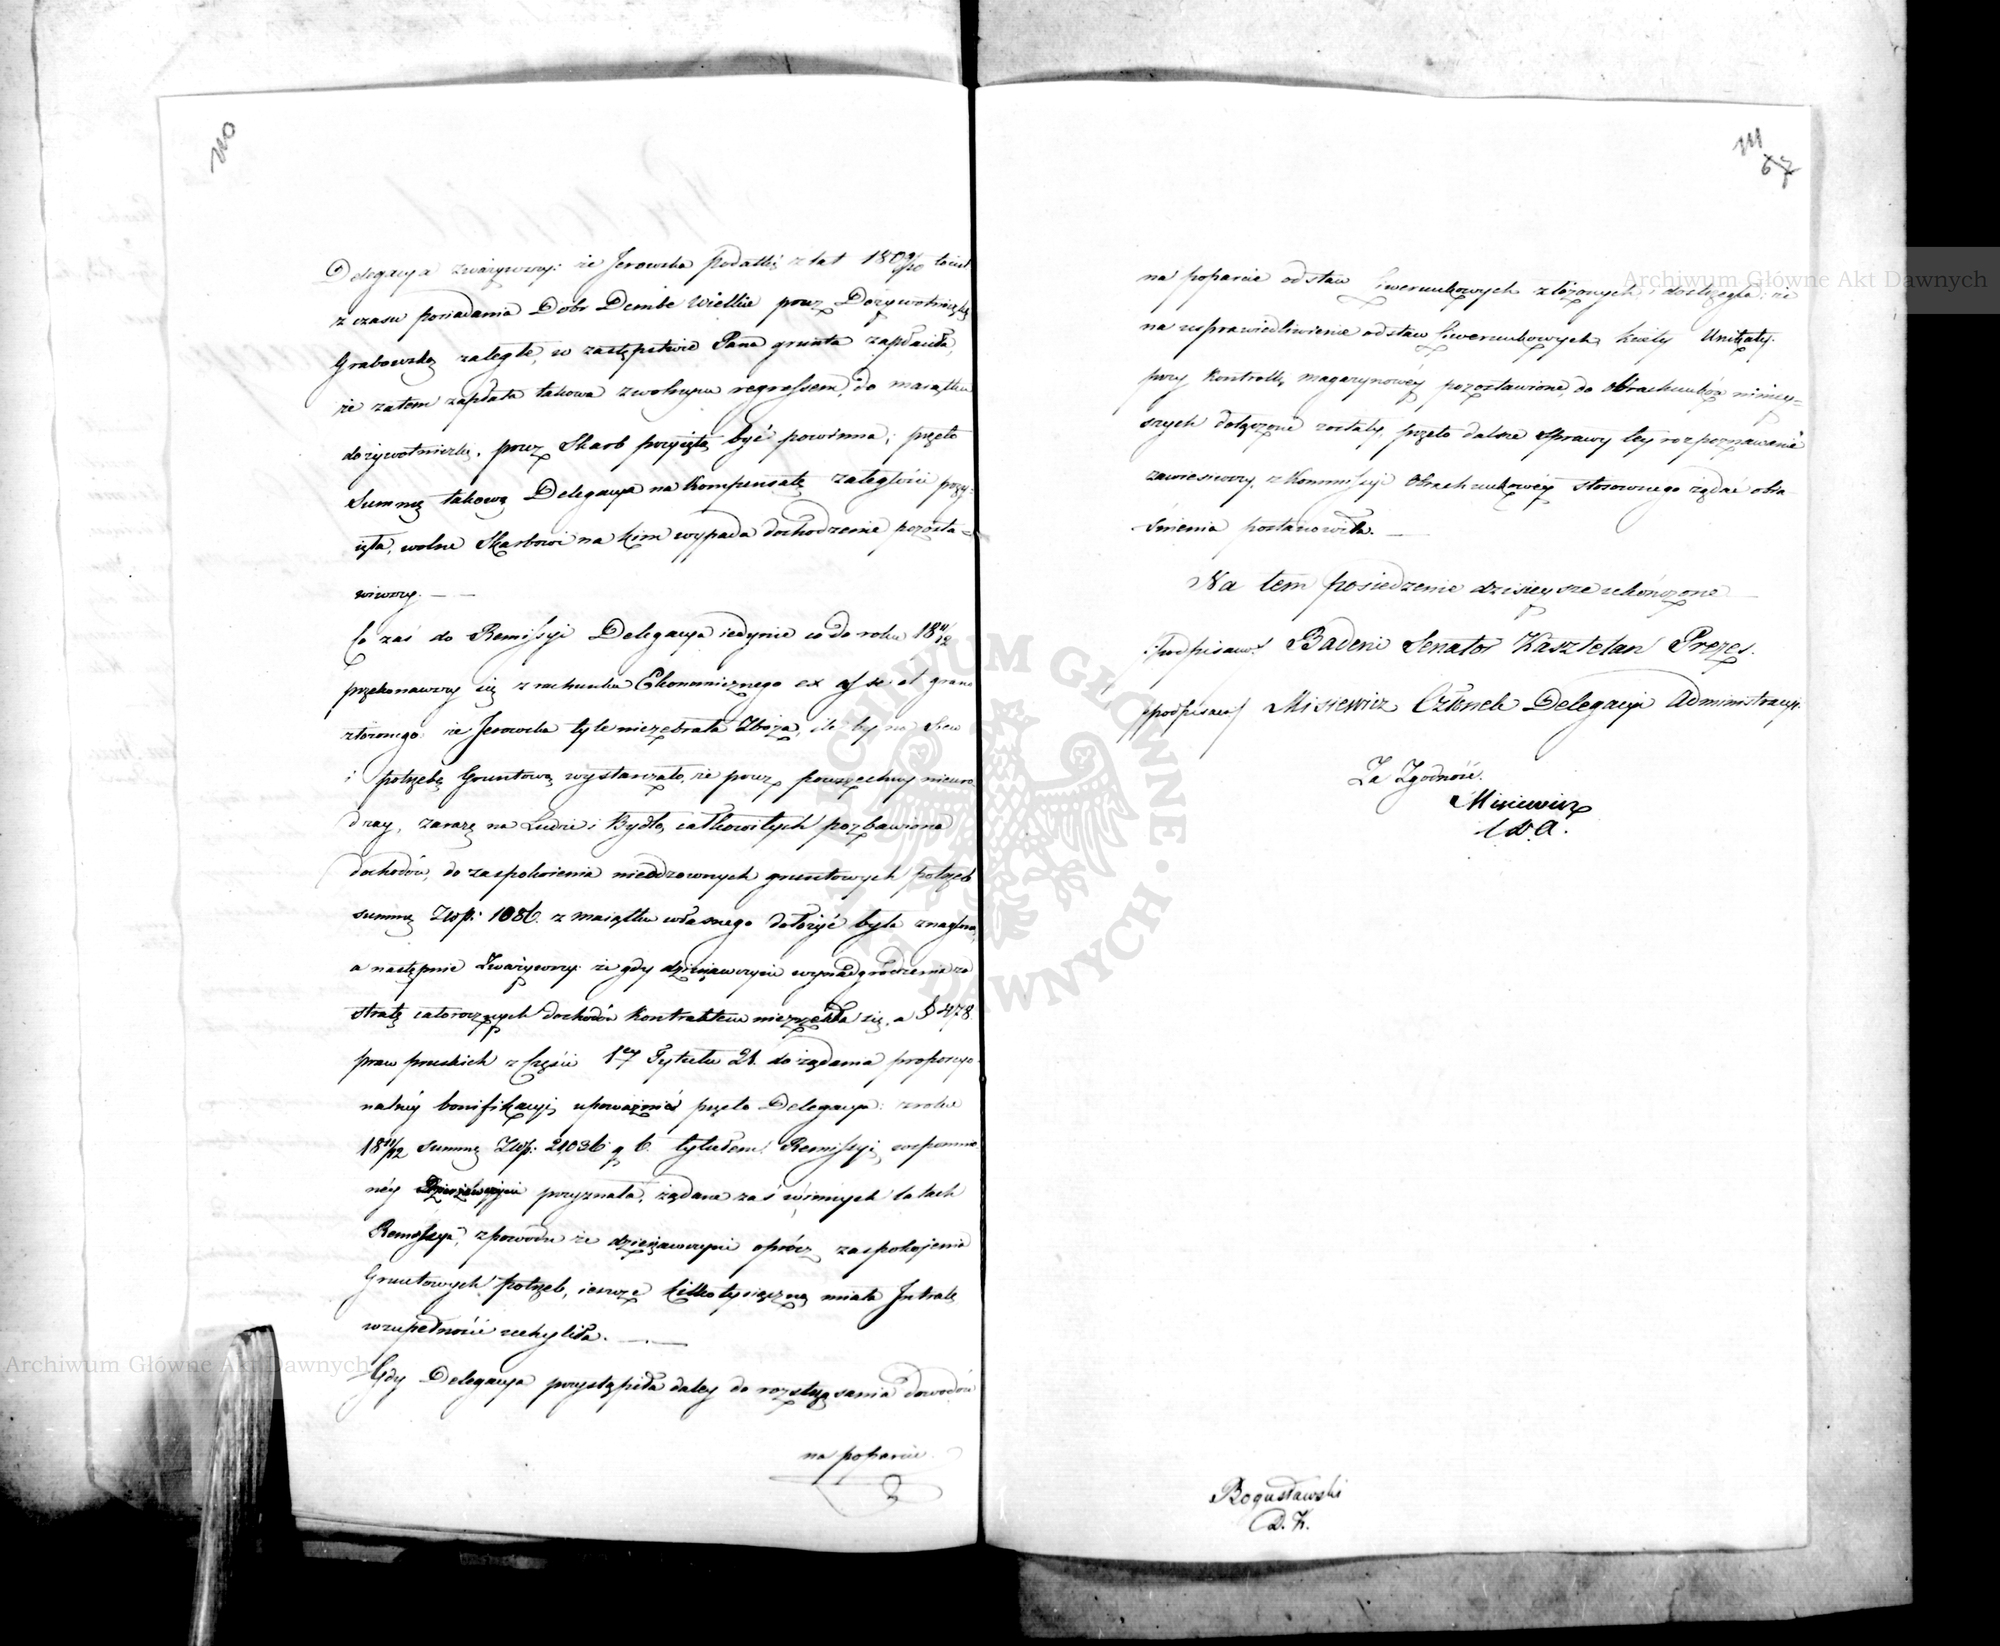 110
Delegacya zważywszy: że Jerowska Podatki z lat 1809/10 to iest
z czasu posiadania Dobr Dembe Wielkie przez Dożywotniczkę
Grabowską zaległe, w zastępstwie Pana gruntu zapłaciła,
że zatem zapłata takowa z wolnym regressem, do maiątku
dożywotniczki, przez Skarb przyiętą być powinna; przeto
Summę takową Delegacya na Kompensatę zaległości przy-
ięła, wolne Skarbowi na kim wypada dochodzenie pozosta=
wiwszy. — —
Co zaś do Remissyi Delegacya iedynie co do roku 1811/12
przekonawszy się z rachunku Ekonomicznego ex asse et grano
złożonego: że Jerowska tyle niezebrała Zboża, ile by na Siew
i potrzebę Gruntową wystarczało, że przez powszechny nieuro
dzay, zarazę na Ludzie i Bydło, całkowitych pozbawiona
dochodów, do zaspokoienia nieodzownych gruntowych potrzeb
summę Złp: 1086. z maiątku własnego dołożyć była znaglona,
a następnie Zważywszy: że gdy dzierżawczyni wynadgrodzenia za
stratę całorocznych dochodów Kontraktem niezrzekła się, a § 478
praw pruskich z Części 1ey Tytułu 21. do żądania proporcyo
nalney bonifikacyi, upoważnia przeto Delegacya: z roku
1811/12 summę Złp: 21036 g 6. tytułem Remissyi, wspomnio
néy Dzierżawczyni przyznała, żądane zaś w innych latach
Remissya, z powodu że dzierżawczyni oprócz zaspokojenia
Gruntowych potrzeb, ieszcze kilkotysiączną miała Intratę
w zupełności uchyliła. — —
Gdy Delegacya przystąpiła daley do rozstrząsania dowodów
na poparcie
111
67
na poparcie odstaw Liwerunkowych złożonych i dostrzegła: że
na usprawiedliwienie odstaw Liwerunkowych, kwity Unitżaty
przy Kontrolli, magazynowéy pozostawione, do Obrachunków niniey=
szych dołączone zostały, przeto dalsze Sprawy tey rozpoznawanie
zawiesiwszy, z Kommissyi Obrachunkowéy stosownego żądać obia
śnienia postanowiła. —
Na tem posiedzenie dzisieysze ukończone —
/:podpisano:/ Badeni Senator Kasztelan Prezes.
/podpisano/ Misiewicz Członek Delegacyi Administracyi.
Za Zgodność.
Misiewicz
C D. A.
Bogusławski
D. K.
Archiwum Główne Akt Dawnych
Archiwum Główne Akt Dawnych
ARCHIWUM GŁÓWNE AKT DAWNYCH